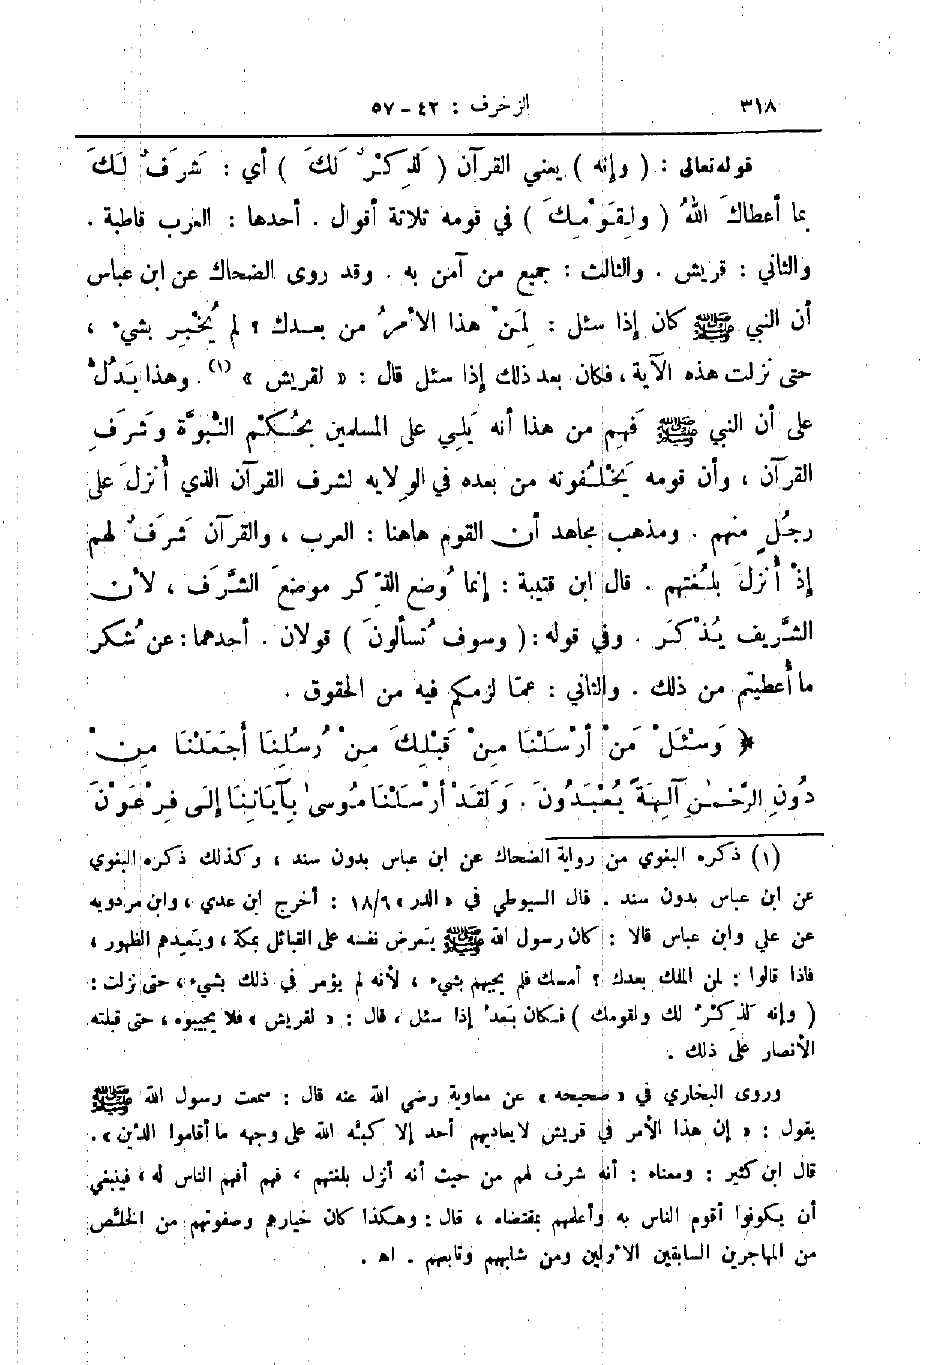 ٣١٨ الزخرف : ٤٢ - ٥٧
قوله تعالى : ( وإنه ) يعني القرآن ( لَذِكْرٌ لَكَ ) أي : شَرَفٌ لَكَ
بما أعطاكَ اللهُ ( ولِقَوْمِكَ ) في قومه ثلاثة أقوال . أحدها : العرب قاطبة .
والثاني : قريش . والثالث : جميع من آمن به . وقد روى الضحاك عن ابن عباس
أن النبي ﷺ كان إذا سئل : لِمَنْ هذا الأمرُ من بعدك ؟ لم يُخْبِر بشيء ،
حتى نزلت هذه الآية ، فكان بعد ذلك إذا سئل قال : « لقريش » (١) . وهذا يَدُلُّ
على أن النبي ﷺ فَهِم من هذا أنه يَلِي على المسلمين بحُكْم النُّبوَّة وشَرَفِ
القرآن ، وأن قومه يَخْلُفونه من بعده في الوِلاية لشرف القرآن الذي أُنزلَ على
رجُلٍ منهم . ومذهب مجاهد أن القوم هاهنا : العرب ، والقرآن شَرَفٌ لهم
إذْ أُنزلَ بلُغتهم . قال ابن قتيبة : إنما وُضع الذِّكر موضعَ الشَّرَف ، لأن
الشَّريف يُذْكَر . وفي قوله : ( وسوف تُسألونَ ) قولان . أحدهما : عن شُكر
ما أُعطيتم من ذلك . والثاني : عمّا لزمكم فيه من الحقوق .
﴿ وَسْئَلْ مَنْ أرْسَلْنَا مِنْ قَبْلِكَ مِنْ رُسُلِنَا أجَعَلْنَا مِنْ
دُونِ الرَّحْمٰنِ آلِهَةً يُعْبَدُونَ . وَلَقَدْ أرْسَلْنَا مُوسىٰ بِآيَاتِنَا إلَى فِرْعَوْنَ
(١) ذكره البغوي من رواية الضحاك عن ابن عباس بدون سند ، وكذلك ذكره البغوي
عن ابن عباس بدون سند . قال السيوطي في « الدر » ١٨/٦ : أخرج ابن عدي ، وابن مردويه
عن علي وابن عباس قالا : كان رسول الله ﷺ يتعرض نفسه على القبائل بمكة ، ويتعِدهم الظهور ،
فاذا قالوا : لمن الملك بعدك ؟ أمسك فلم يجبهم بشيء ، لأنه لم يؤمر في ذلك بشيء ، حتى نزلت :
( وإنه لَذِكْرٌ لك ولقومك ) فكان بَعدُ إذا سئل ، قال : « لقريش » فلا يجيبوه ، حتى قبلته
الأنصار على ذلك .
وروى البخاري في « صحيحه » عن معاوية رضي الله عنه قال : سمعت رسول الله ﷺ
يقول : « إن هذا الأمر في قريش لا يعاديهم أحد إلا كبَّه الله على وجهه ما أقاموا الدين » .
قال ابن كثير : ومعناه : أنه شرف لهم من حيث أنه أنزل بلغتهم ، فهم أفهم الناس له ، فينبغي
أن يكونوا أقوم الناس به وأعلمهم بمقتضاه ، قال : وهكذا كان خيارهم وصفوتهم من الخلَّص
من المهاجرين السابقين الأولين ومن شابههم وتابعهم . اهـ .